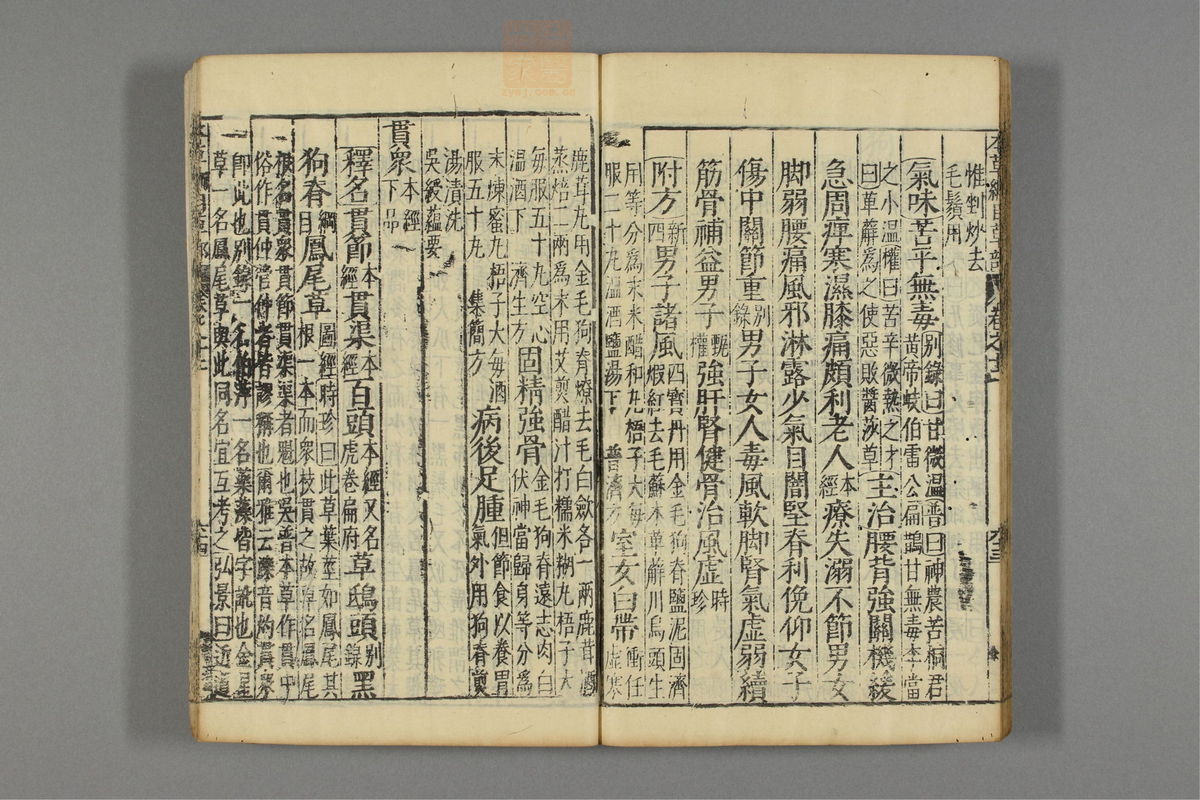 惟剉炒去
毛鬚用
氣味苦平無毒別錄曰甘微溫普曰神農苦桐君
黃帝岐伯雷公扁鵲甘無毒李當
之小溫權曰苦辛微熱之才
曰萆薢爲之使惡敗醬莎草主治腰背強關機緩
急周痺寒濕膝痛頗利老人本經療失溺不節男女
脚弱腰痛風邪淋露少氣目闇堅脊利俛仰女子
傷中關節重別錄男子女人毒風軟脚腎氣虛弱續
筋骨補益男子甄權強肝腎健骨治風虛時珍
附方新四男子諸風四寶丹用金毛狗脊鹽泥固濟
煅紅去毛蘇木萆薢川烏頭生
用等分爲末米醋和丸梧子大每
服二十丸溫酒鹽湯下 普濟方室女白帶虛寒
鹿茸丸用金毛狗脊燎去毛白斂各一兩鹿茸酒
蒸焙二兩爲末用艾煎醋汁打糯米糊丸梧子大
每服五十丸空心
溫酒下 濟生方固精強骨金毛狗脊遠志肉白
伏神當歸身等分爲
末煉蜜丸梧子大每酒
服五十丸 集簡方病後足腫但節食以養胃
氣外用狗脊煎
湯漬洗
吳綬蘊要
貫衆本經下品
釋名貫節本經貫渠本經百頭本經又名虎卷扁府草鴟頭別錄黑
狗脊綱目鳳尾草圖經時珍曰此草葉莖如鳳尾其
根一本而衆枝貫之故草名鳳尾
根名貫衆貫節貫渠渠者魁也吳普本草作貫中
俗作貫仲管仲者皆謬稱也爾雅云濼音灼貫衆
即此也別錄一名伯萍一名藥藻皆字訛也金星
草一名鳳尾草與此同名宜互考之弘景曰近道